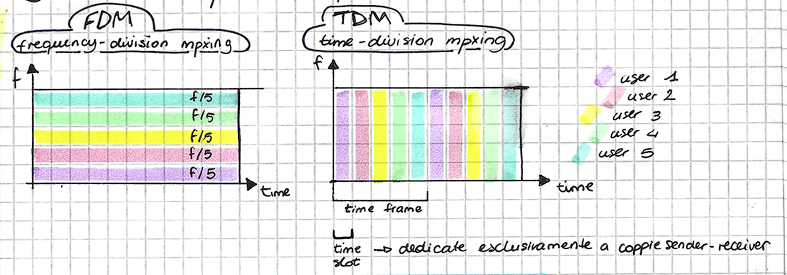 FDM
frequency-division mpxing
f
f/5
f/5
f/5
f/5
f/5
time
TDM
time-division mpxing
f
time
time frame
time slot → dedicate esclusivamente a coppie sender-receiver
user 1
user 2
user 3
user 4
user 5